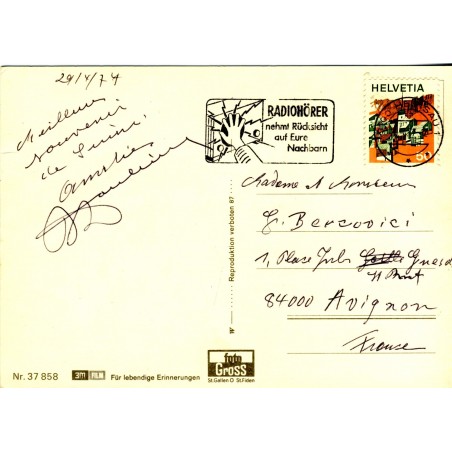 29/V/74
HELVETIA
50
RADIOHÖRER
nehmt Rücksicht
auf Eure
Nachbarn
Meilleur
souvenir
de
Amitiés
Madame et Monsieur
G. Bercovici
1, Place Jules Guesde
84000 Avignon
France
Reproduktion verboten 87
W
Nr. 37 858
3M FILM
Für lebendige Erinnerungen
foto
Gross
St.Gallen O St.Fiden